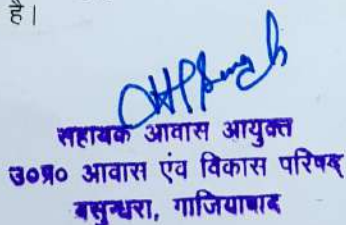 है।
सहायक आवास आयुक्त
उ०प्र० आवास एंव विकास परिषद्
वसुन्धरा, गाजियाबाद